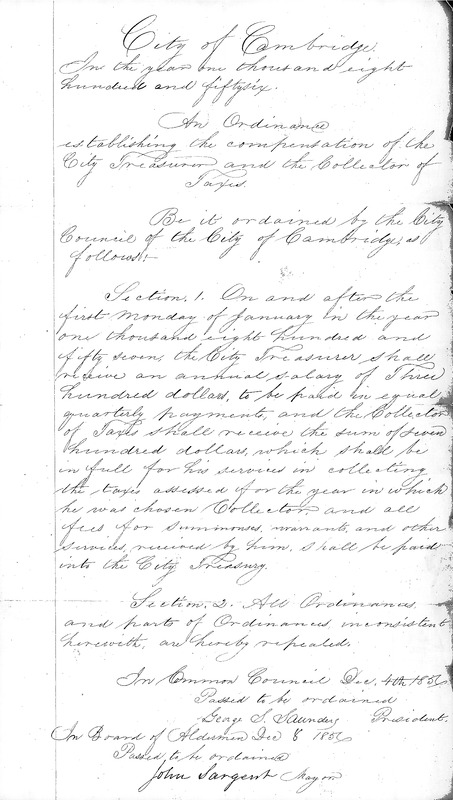 City of Cambridge.
In the year one thousand eight
hundred and fiftysix.
An Ordinance
establishing the compensation of the
City Treasurer and the Collector of
Taxes.
Be it ordained by the City
Council of the City of Cambridge, as
follows:-
Section. 1. On and after the
first Monday of January in the year
one thousand eight hundred and
fifty seven, the City Treasurer shall
receive an annual salary of Three
hundred dollars, to be paid in equal
quarterly payments, and the Collector
of Taxes shall receive the sum of seven
hundred dollars, which shall be
in full for his services in collecting
the taxes assessed for the year in which
he was chosen Collector, and all
fees for summonses, warrants, and other
services, received by him, shall be paid
into the City Treasury.
Section. 2. All Ordinances,
and parts of Ordinances, inconsistent
herewith, are hereby repealed.
In Common Council Dec. 4th 1856
Passed to be ordained
George S. Saunders President.
In Board of Aldermen Dec 8 1856
Passed to be ordained
John Sargent Mayor